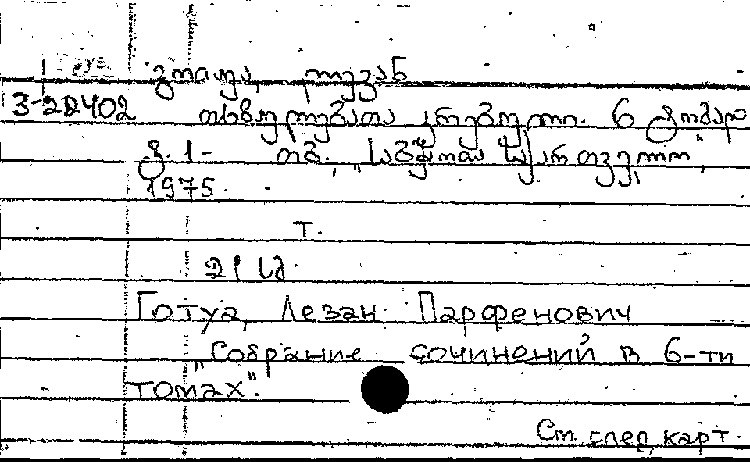 გოთუა, ლევან
3-22402 თხზულებათა კრებული. 6 ტომად
ტ. 1- თბ., „საბჭოთა საქართველო“,
1975.
т.
21 см.
Готуа, Леван Парфенович
„Собрание сочинений в 6-ти
томах“.
См. след. карт.